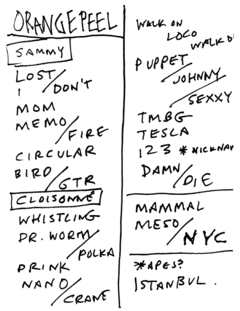 ORANGE PEEL
SAMMY
LOST
I / DON'T
MOM
MEMO
/ FIRE
CIRCULAR
BIRD
/ GTR
CLOISONNÉ
WHISTLING
DR. WORM
/ POLKA
DRINK
NANO
/ CRANE
WALK ON
LOCO
WALK
PUPPET
/ JOHNNY
/ SEXXY
TMBG
TESLA
123 *NICKNA
DAMN
/ DIE
MAMMAL
MESO
/ NYC
*APES?
ISTANBUL.